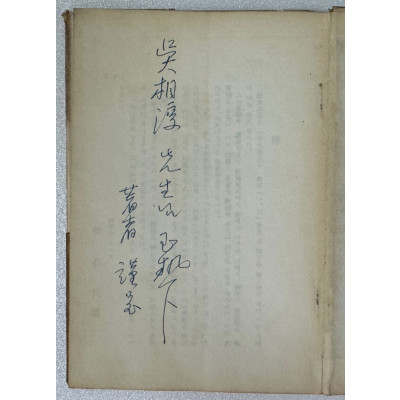 吳相淳 先生님 玉机下
著者 謹呈